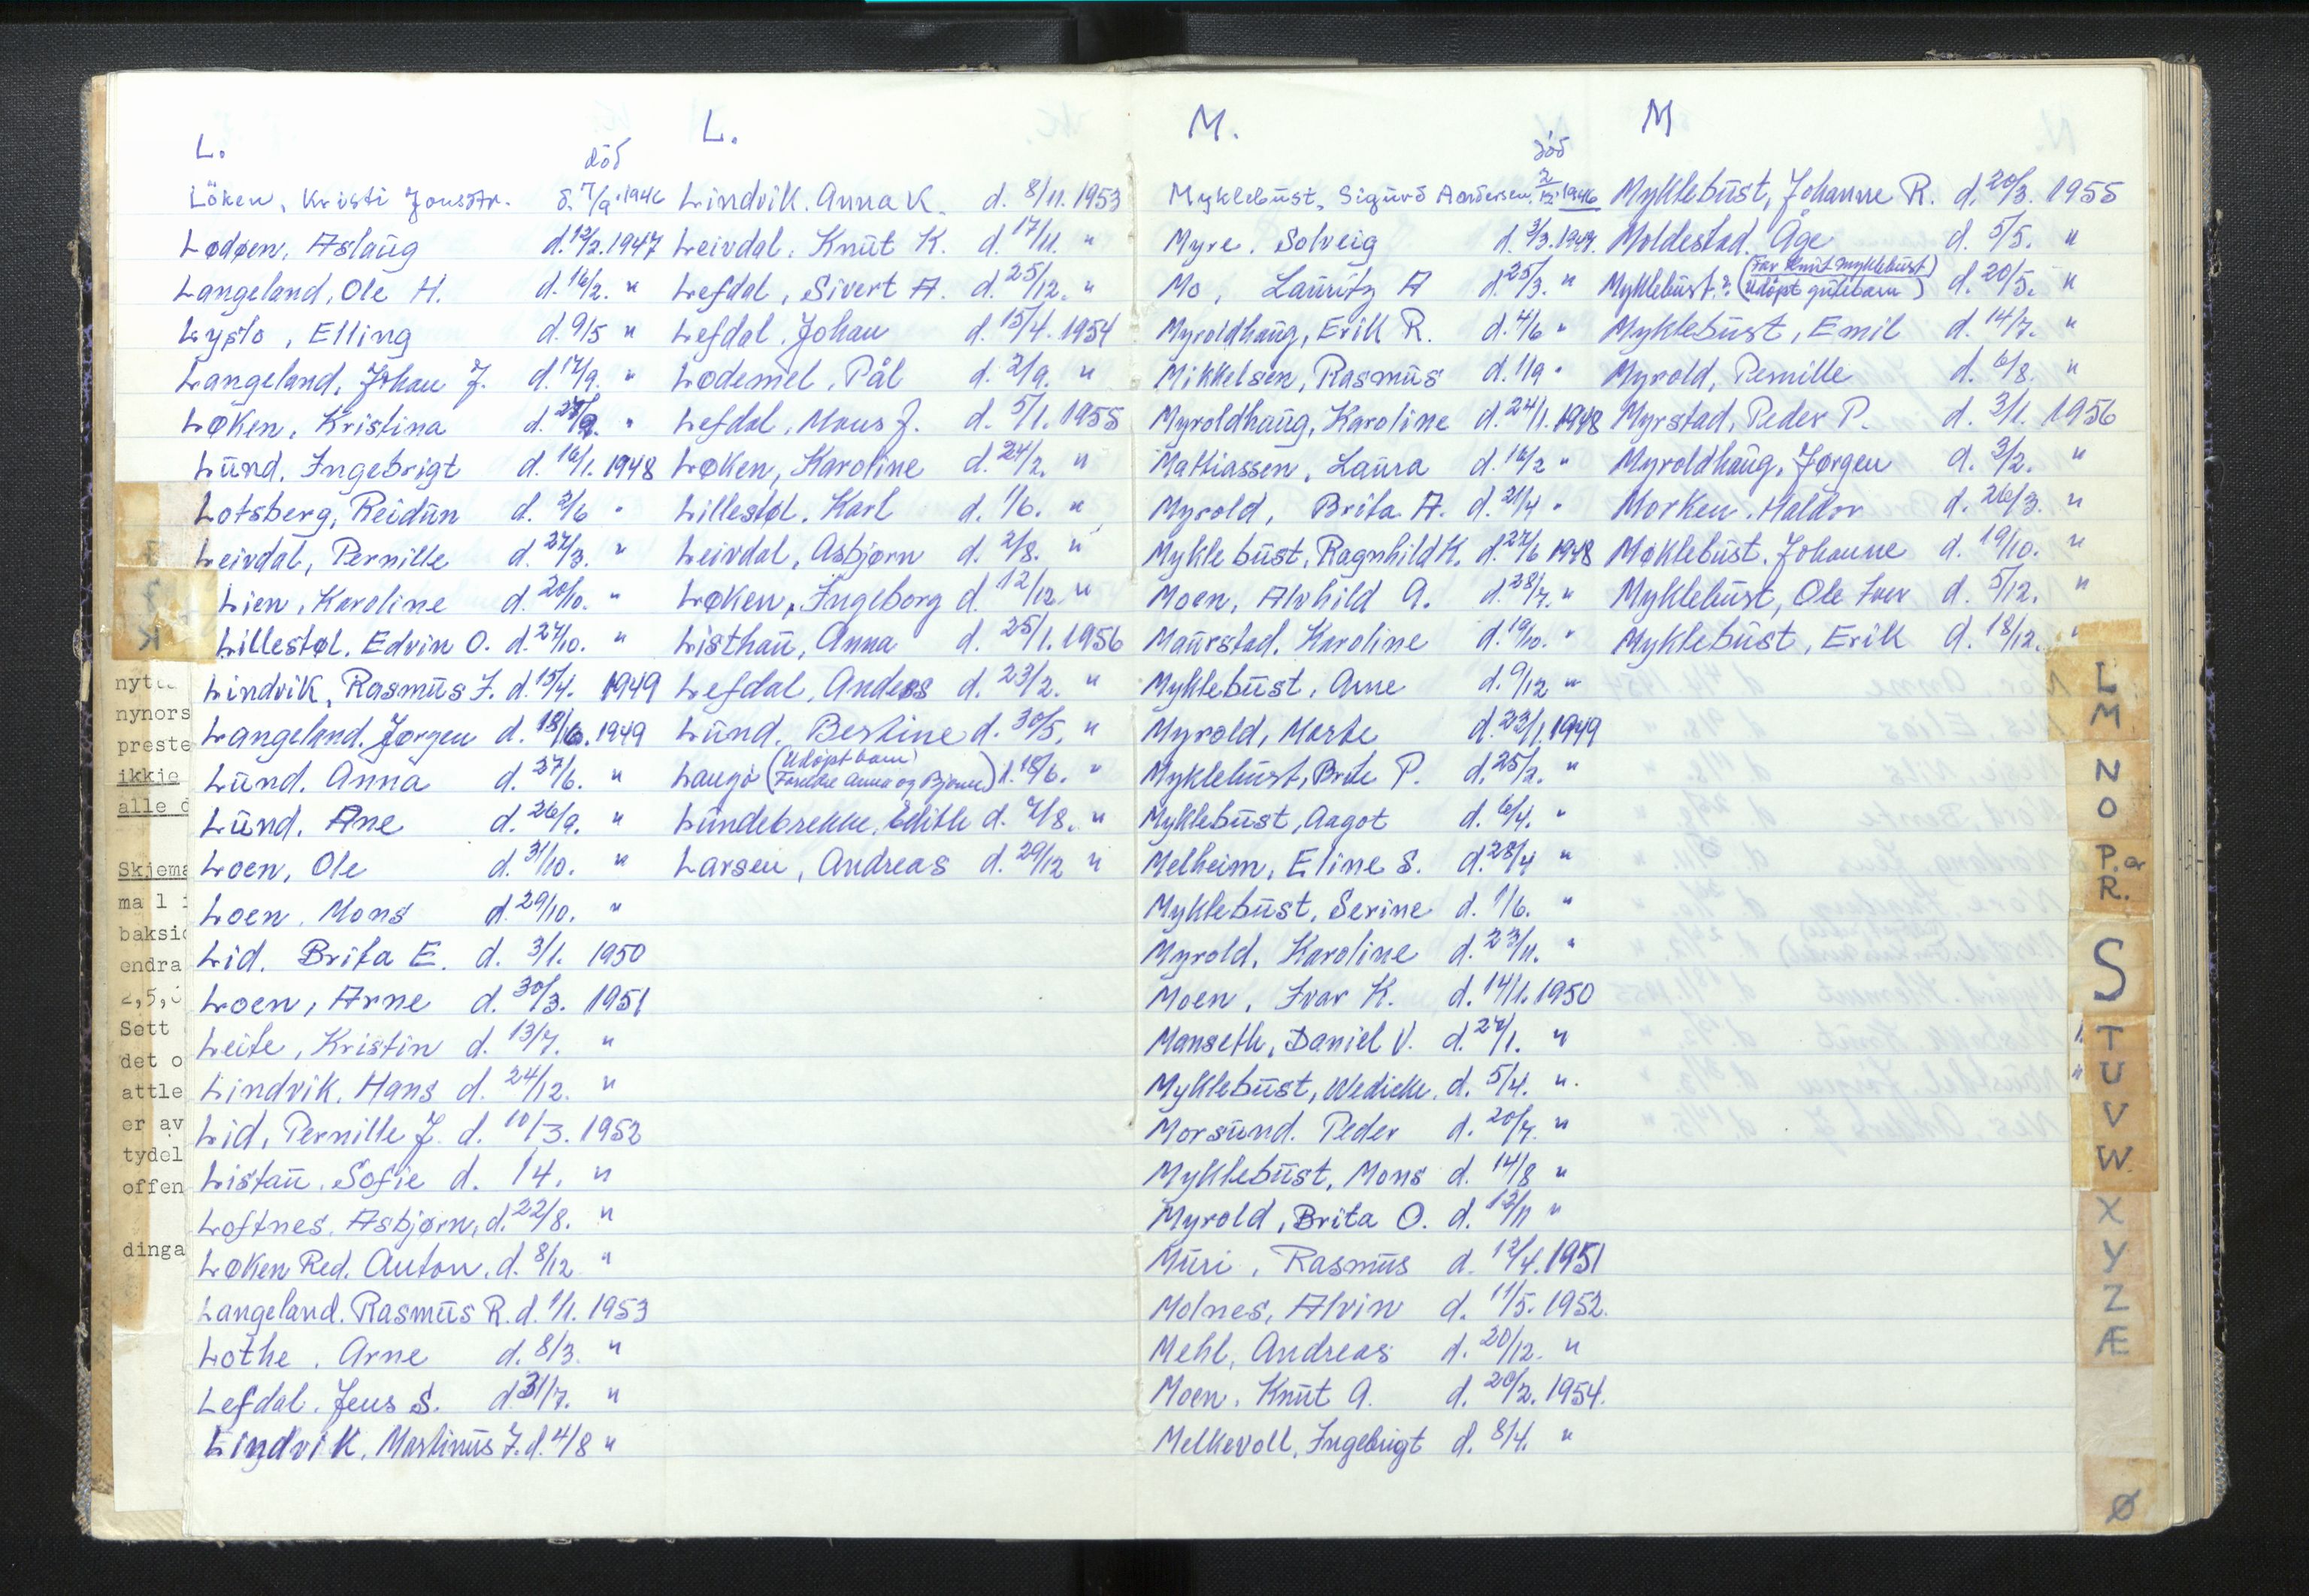 L.
död
Löken, Kristi Jonsdtr. d. 7/9. 1946
Lødøen, Aslaug d. 12/2. 1947
Langeland, Ole H. d. 16/2. "
Lyslo, Elling d. 9/5 "
Langeland, Johan J. d. 17/9. "
Løken, Kristina d. "
Lund, Ingebrigt d. 16/1. 1948
Lotsberg, Reidun d. 2/6 "
Leivdal, Pernille d. 27/3. "
Lien, Karoline d. 20/10. "
Lillestøl, Edvin O. d. 27/10. "
Lindvik, Rasmus J. d. 15/4. 1949
Langeland, Jørgen d. 18/6. 1949
Lund, Anna d. 27/6. "
Lund, Ane d. 26/9. "
Loen, Ole d. 31/10. "
Loen, Mons d. 29/10. "
Lid, Brita E. d. 3/1. 1950
Loen, Arne d. 30/3. 1951
Leite, Kristin d. 13/7. "
Lindvik, Hans d. 24/12. "
Lid, Pernille J. d. 10/3. 1952
Listau, Sofie d. 14. "
Loftnes, Asbjørn, d. 22/8. "
Løken Red. Anton, d. 8/12 "
Langeland, Rasmus R. d. 1/1. 1953
Lothe, Arne d. 8/3. "
Lefdal, Jens S. d. 31/7. "
Lindvik, Martinus J. d. 4/8 "
L.
Lindvik, Anna K. d. 8/11. 1953
Leivdal, Knut K. d. 17/11. "
Lefdal, Sivert A. d. 25/12. "
Lefdal, Johan d. 15/4. 1954
Lødemel, Pål d. 2/9. "
Lefdal, Mons J. d. 5/1. 1955
Løken, Karoline d. 24/2. "
Lillestøl, Karl d. 1/6. "
Leivdal, Asbjørn d. 2/8. "
Løken, Ingeborg d. 12/12 "
Listhau, Anna d. 25/1. 1956
Lefdal, Anders d. 23/2. "
Lund, Bertine d. 30/5. "
Langø (Udøpt barn Foreldre Anna og Bjarne) d. 18/6. "
Lundebrekke, Edith d. 7/8. "
Larsen, Andreas d. 29/12 "
M.
död
Myklebust, Sigurd Andersen, 2/12. 1946
Myre, Solveig d. 3/3. 1947.
Mo, Lauritz A d. 25/3. "
Myroldhaug, Erik R. d. 4/6 "
Mikkelsen, Rasmus d. 1/9 "
Myroldhaug, Karoline d. 24/1. 1948
Mathiassen, Laura d. 16/2 "
Myrold, Brita A. d. 21/4 "
Myklebust, Ragnhild K. d. 27/6 1948
Moen, Alvhild A. d. 28/7. "
Maurstad, Karoline d. 19/10. "
Myklebust, Arne d. 9/12 "
Myrold, Marte d. 23/1. 1949
Myklebust, Brite P. d. 25/2. "
Myklebust, Aagot d. 6/4. "
Melheim, Eline S. d. 28/4 "
Myklebust, Serine d. 1/6. "
Myrold, Karoline d. 23/11. "
Moen, Ivar K. d. 14/1. 1950
Manseth, Daniel V. d. 27/1. "
Myklebust, Wedicke, d. 5/4. ".
Morsund, Peder d. 20/7. "
Myklebust, Mons d. 14/8 "
Myrold, Brita O. d. 12/11 "
Muri, Rasmus d. 12/4. 1951
Molnes, Alvin d. 11/5. 1952.
Mehl, Andreas d. 20/12. "
Moen, Knut A. d. 20/2. 1954.
Melkevoll, Ingebrigt d. 8/4. "
M
Myklebust, Johanne R. d. 20/3. 1955
Moldestad, Åge d. 5/5. "
Myklebust? (far Knut Myklebust) (udøpt gutebarn) d. 20/5. "
Myklebust, Emil d. 14/7. "
Myrold, Pernille d. 6/8. "
Myrstad, Peder P. d. 3/1. 1956
Myroldhaug, Jørgen d. 3/2. "
Morken, Haldor d. 26/3. "
Møklebust, Johanne d. 19/10. "
Myklebust, Ole Iver d. 5/12. "
Myklebust, Erik d. 18/12. "
nynors
preste
ikkje
alle d
Skjema
ma l
baksid
endra
2,5,
Sett
det o
attle
er av
tydel
offen
dinga
L
M
N
O
P.Q
R.
S
T
U
V
W.
X
Y
Z
Æ
Ø